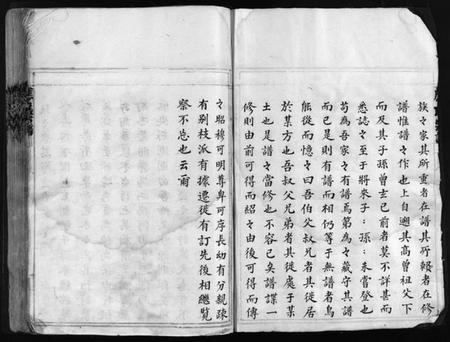 族々家其所重在譜其所報者在修
譜惟譜々作也上自遡其高曾祖父下
而及其子孫曾玄已前者莫不詳甚而
悉誌々至于將來子〻孫〻未嘗登也
苟為吾家々有譜焉第為々藏守其譜
而已是則有譜而相仍等于無譜者烏
能從而憶々曰吾伯父叔兄者其從居
於某方也吾叔父兄弟者其從處于某
土也是譜々當修也不容已矣譜諜一
修則由前可得而紹々由後可得而傳
々昭穆可明尊卑可序長幼有分親疎
有别枝派有據遷從有訂先後相繼覧
察不忘也云爾